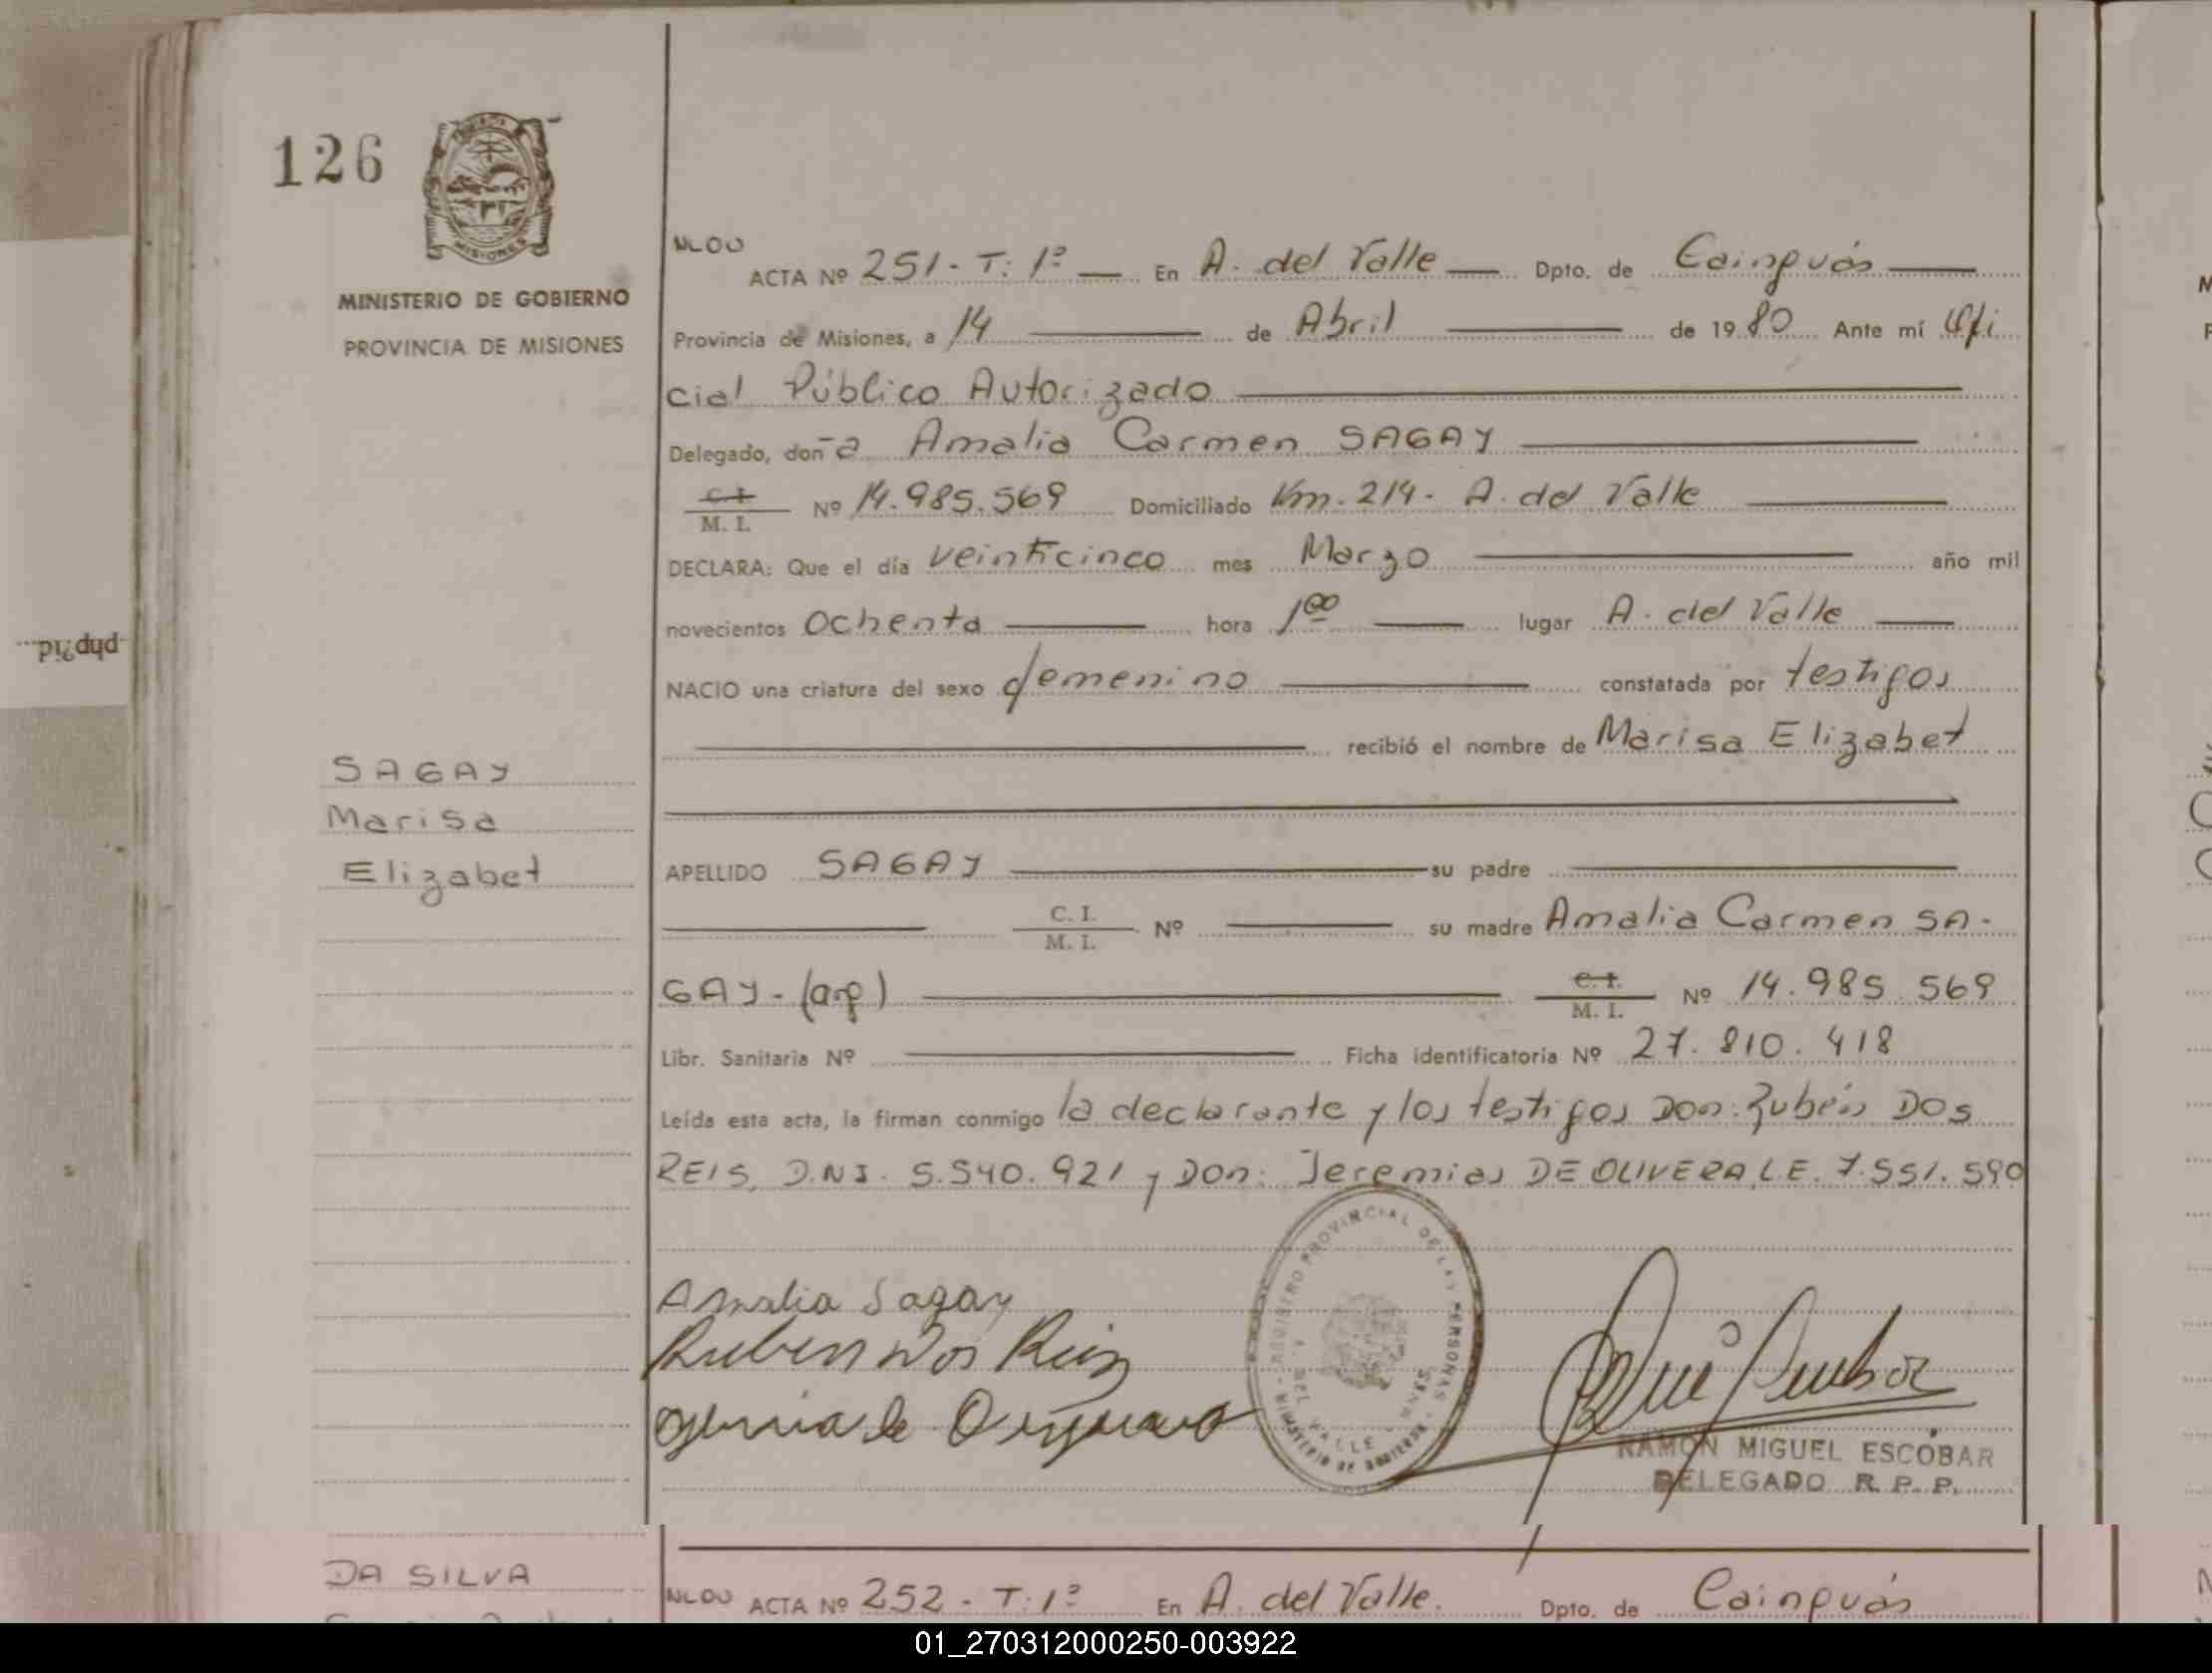 126
MISIONES
MINISTERIO DE GOBIERNO
PROVINCIA DE MISIONES
NLOU
ACTA Nº 251 - T: 1º — En A. del Valle — Dpto. de Cainguás —
Provincia de Misiones, a 14 — de Abril — de 1980 Ante mí Ofi
cial Público Autorizado —
Delegado, doña Amalia Carmen SAGAY —
C. I.
M. I. Nº 14.985.569 Domiciliado Km. 214 - A. del Valle —
DECLARA: Que el día veinticinco mes Marzo — año mil
novecientos ochenta — hora 1 00 — lugar A. del Valle —
NACIO una criatura del sexo femenino — constatada por testigos
— recibió el nombre de Marisa Elizabet
SAGAY
Marisa
Elizabet
APELLIDO SAGAY — su padre —
— C. I.
M. I. Nº — su madre Amalia Carmen SA-
GAY - (arg) — C. I.
M. I. Nº 14.985.569
Libr. Sanitaria Nº — Ficha identificatoria Nº 27.810.418
Leída esta acta, la firman conmigo la declarante y los testigos Don: Rubén DOS
REIS, D.N.I. 5.540.921 y Don: Jeremias DE OLIVERA, L.E. 7.551.590
Amalia Sagay
Ruben Dos Reis
REGISTRO PROVINCIAL DE LAS PERSONAS
MINISTERIO DE GOBIERNO
A. DEL VALLE - MNES.
RAMON MIGUEL ESCOBAR
DELEGADO R. P. P.
DA SILVA
NLOU ACTA Nº 252 - T: 1º En A. del Valle. Dpto. de Cainguás
php?id
01_270312000250-003922